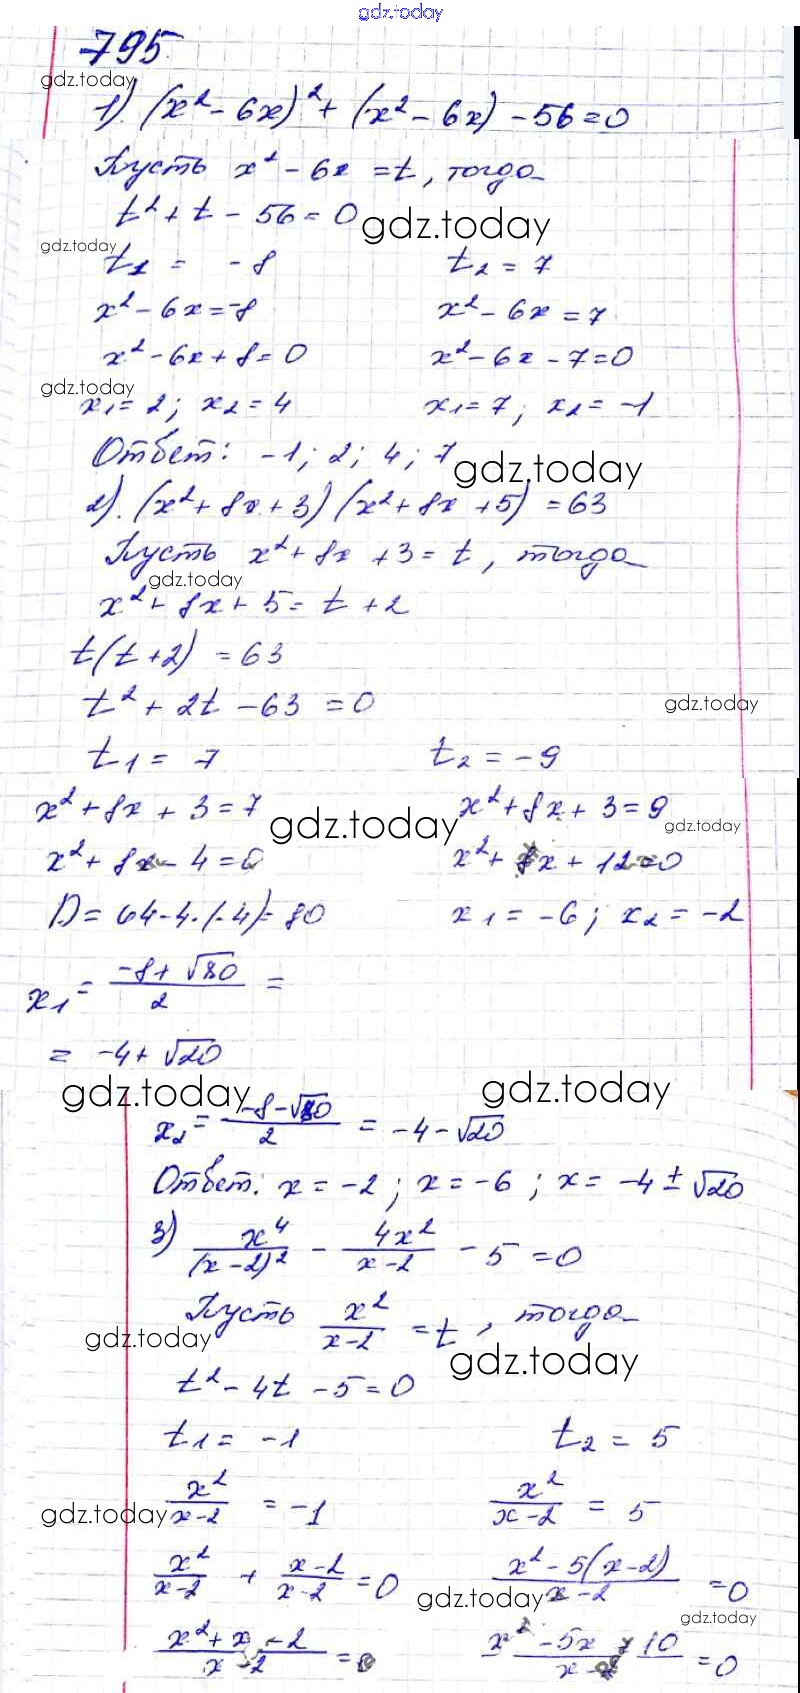 gdz.today
795
gdz.today
1) (x² - 6x)² + (x² - 6x) - 56 = 0
Пусть x² - 6x = t, тогда
t² + t - 56 = 0
gdz.today
gdz.today
t₁ = -8 t₂ = 7
x² - 6x = -8 x² - 6x = 7
x² - 6x + 8 = 0 x² - 6x - 7 = 0
gdz.today
x₁ = 2; x₂ = 4 x₁ = 7; x₂ = -1
Ответ: -1; 2; 4; 7
gdz.today
2). (x² + 8x + 3)(x² + 8x + 5) = 63
Пусть x² + 8x + 3 = t, тогда
gdz.today
x² + 8x + 5 = t + 2
t(t + 2) = 63
t² + 2t - 63 = 0
gdz.today
t₁ = 7 t₂ = -9
x² + 8x + 3 = 7 x² + 8x + 3 = 9
gdz.today
gdz.today
x² + 8x - 4 = 0 x² + 8x + 12 = 0
D = 64 - 4·(-4) = 80 x₁ = -6; x₂ = -2
x₁ = (-8 + √80)/2 =
= -4 + √20
gdz.today
gdz.today
x₂ = (-8 - √80)/2 = -4 - √20
Ответ: x = -2; x = -6; x = -4 ± √20
3) x⁴/(x - 2)² - 4x²/(x - 2) - 5 = 0
Пусть x²/(x - 2) = t, тогда
gdz.today
gdz.today
t² - 4t - 5 = 0
t₁ = -1 t₂ = 5
x²/(x - 2) = -1 x²/(x - 2) = 5
gdz.today
x²/(x - 2) + (x - 2)/(x - 2) = 0 (x² - 5(x - 2))/(x - 2) = 0
gdz.today
gdz.today
(x² + x - 2)/(x - 2) = 0 (x² - 5x + 10)/(x - 2) = 0